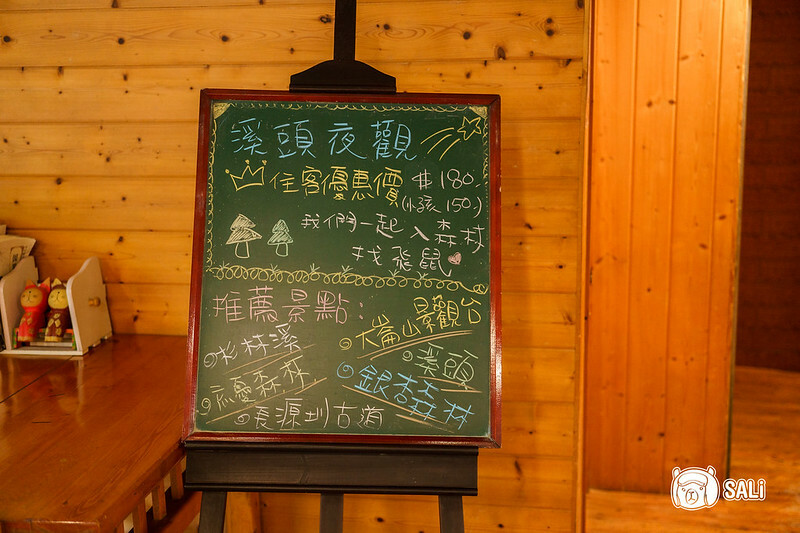 溪頭夜觀
住客優惠價 #180.
(小孩 150.)
我們一起入森林
找飛鼠
推薦景點:
杉林溪
忘憂森林
長源圳古道
大崙山景觀台
溪頭
銀杏森林
SALi